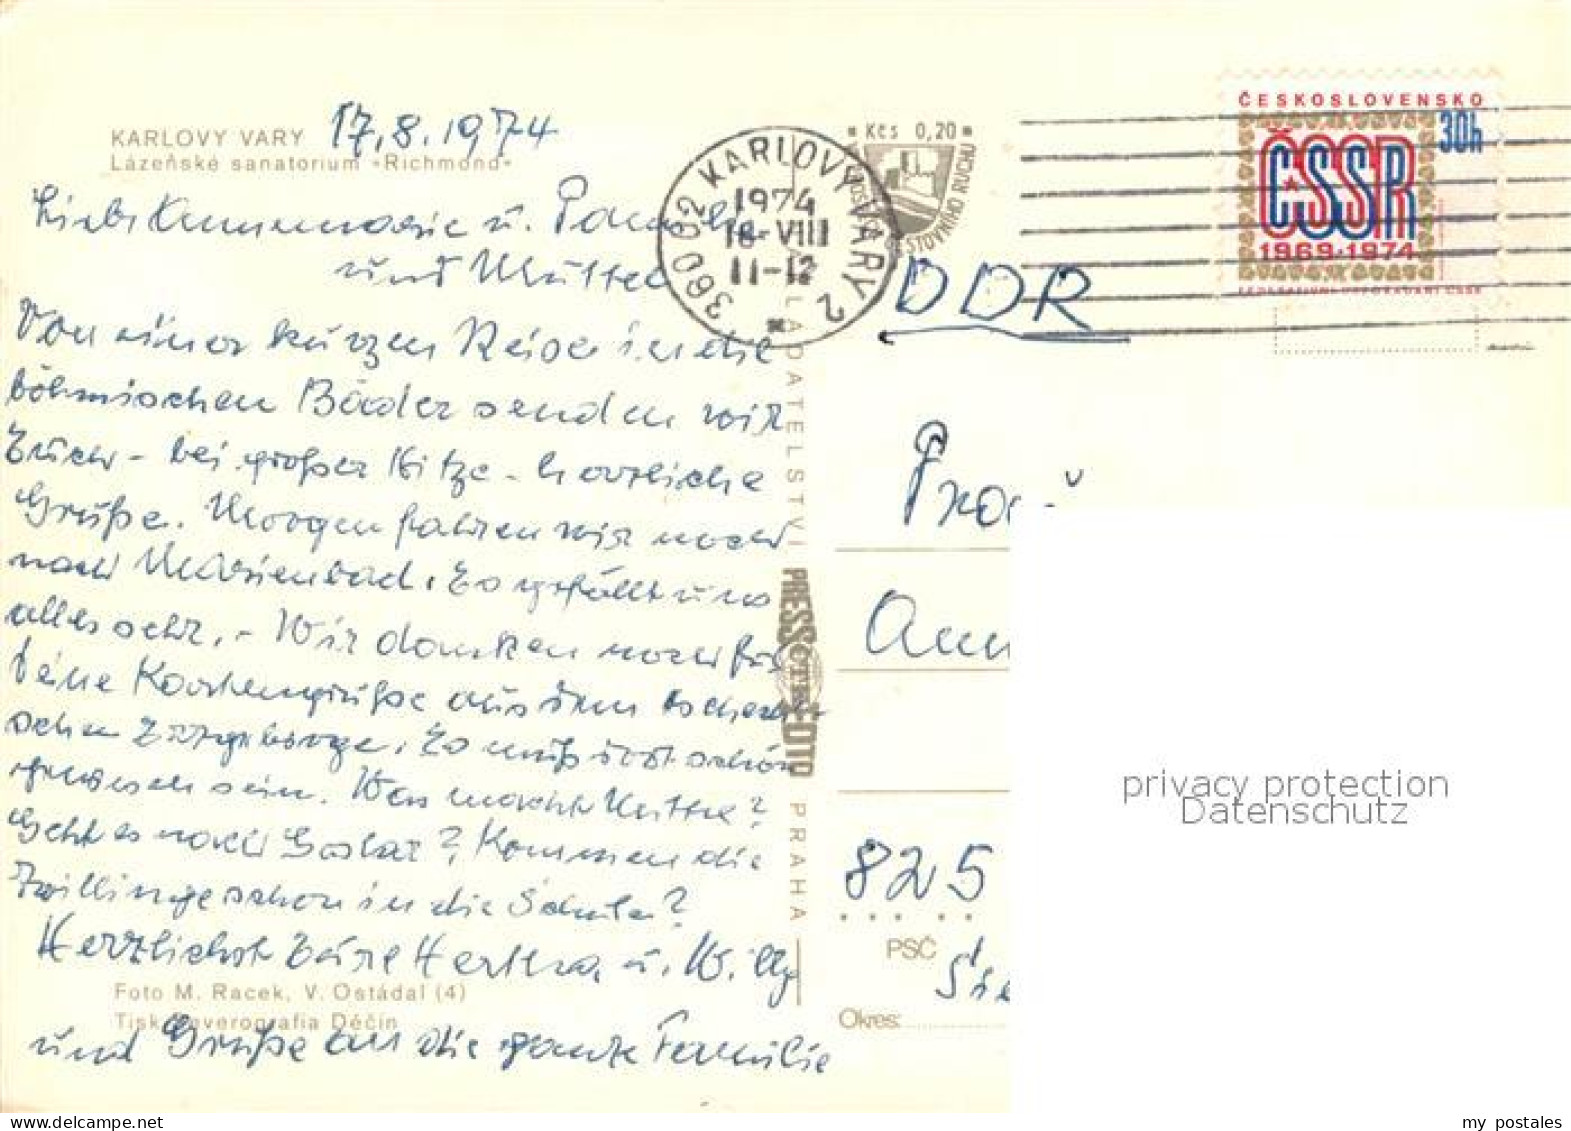 KARLOVY VARY
Lázeňské sanatorium »Richmond«
17.8.1974
Liebe Annemarie u. Familie
und Mutter
Von einer kurzen Reise in die
böhmischen Bäder senden wir
Euch - bei großer Hitze - herzliche
Grüße. Morgen fahren wir noch
nach Marienbad. Es gefällt uns
alles sehr. - Wir danken noch für
Deine Kartengrüße aus dem
schen Erzgebirge. Es muß dort schön
gewesen sein. Was macht Mutter?
Geht es nach Goslar? Kommen die
Zwillinge schon in die Schule?
Herzlichst Eure Hertha u. Willy
und Grüße an die ganze Familie
Foto M. Racek, V. Ostádal (4)
Tisk Severografia Děčín
NAKLADATELSTVÍ PRESSFOTO PRAHA
ČTK
Kčs 0,20
360 02 KARLOVY VARY 2
1974
18-VIII
11-12
CESTOVNÍHO RUCHU
ČESKOSLOVENSKO
30h
ČSSR
1969·1974
FEDERATIVNÍ USPOŘÁDÁNÍ ČSSR
DDR
825
PSČ
Okres:
privacy protection
Datenschutz
my postales